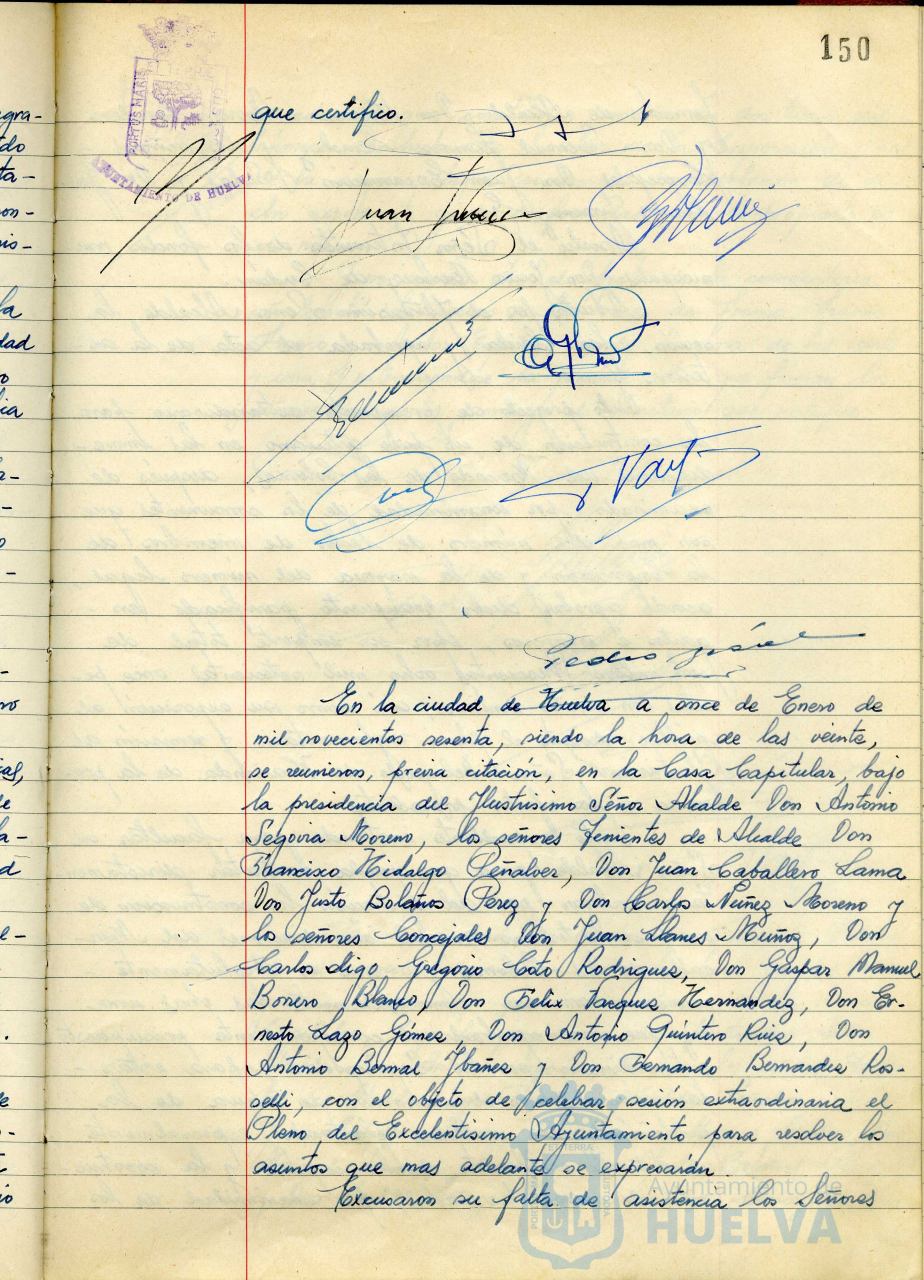 150
PORTUS MARIS
AYUNTAMIENTO DE HUELVA
que certifico.
Juan
Pedro
En la ciudad de Huelva a once de Enero de
mil novecientos sesenta, siendo la hora de las veinte,
se reunieron, previa citación, en la Casa Capitular, bajo
la presidencia del Ilustrisimo Señor Alcalde Don Antonio
Segovia Moreno, los señores Tenientes de Alcalde Don
Francisco Hidalgo Peñalver, Don Juan Caballero Lama
Don Justo Bolaños Perez y Don Carlos Nuñez Moreno y
los señores Concejales Don Juan Llanes Muñoz, Don
Carlos digo Gregorio Coto Rodriguez, Don Gaspar Manuel
Borrero Blanco, Don Felix Vazquez Hernandez, Don Er-
nesto Lazo Gómez, Don Antonio Quintero Ruiz, Don
Antonio Bernal Ibañez y Don Fernando Bernardez Ros-
selli, con el objeto de celebrar sesión extraordinaria el
Pleno del Excelentisimo Ayuntamiento para resolver los
asuntos que mas adelante se expresarán.
Excusaron su falta de asistencia los Señores
Ayuntamiento de
HUELVA